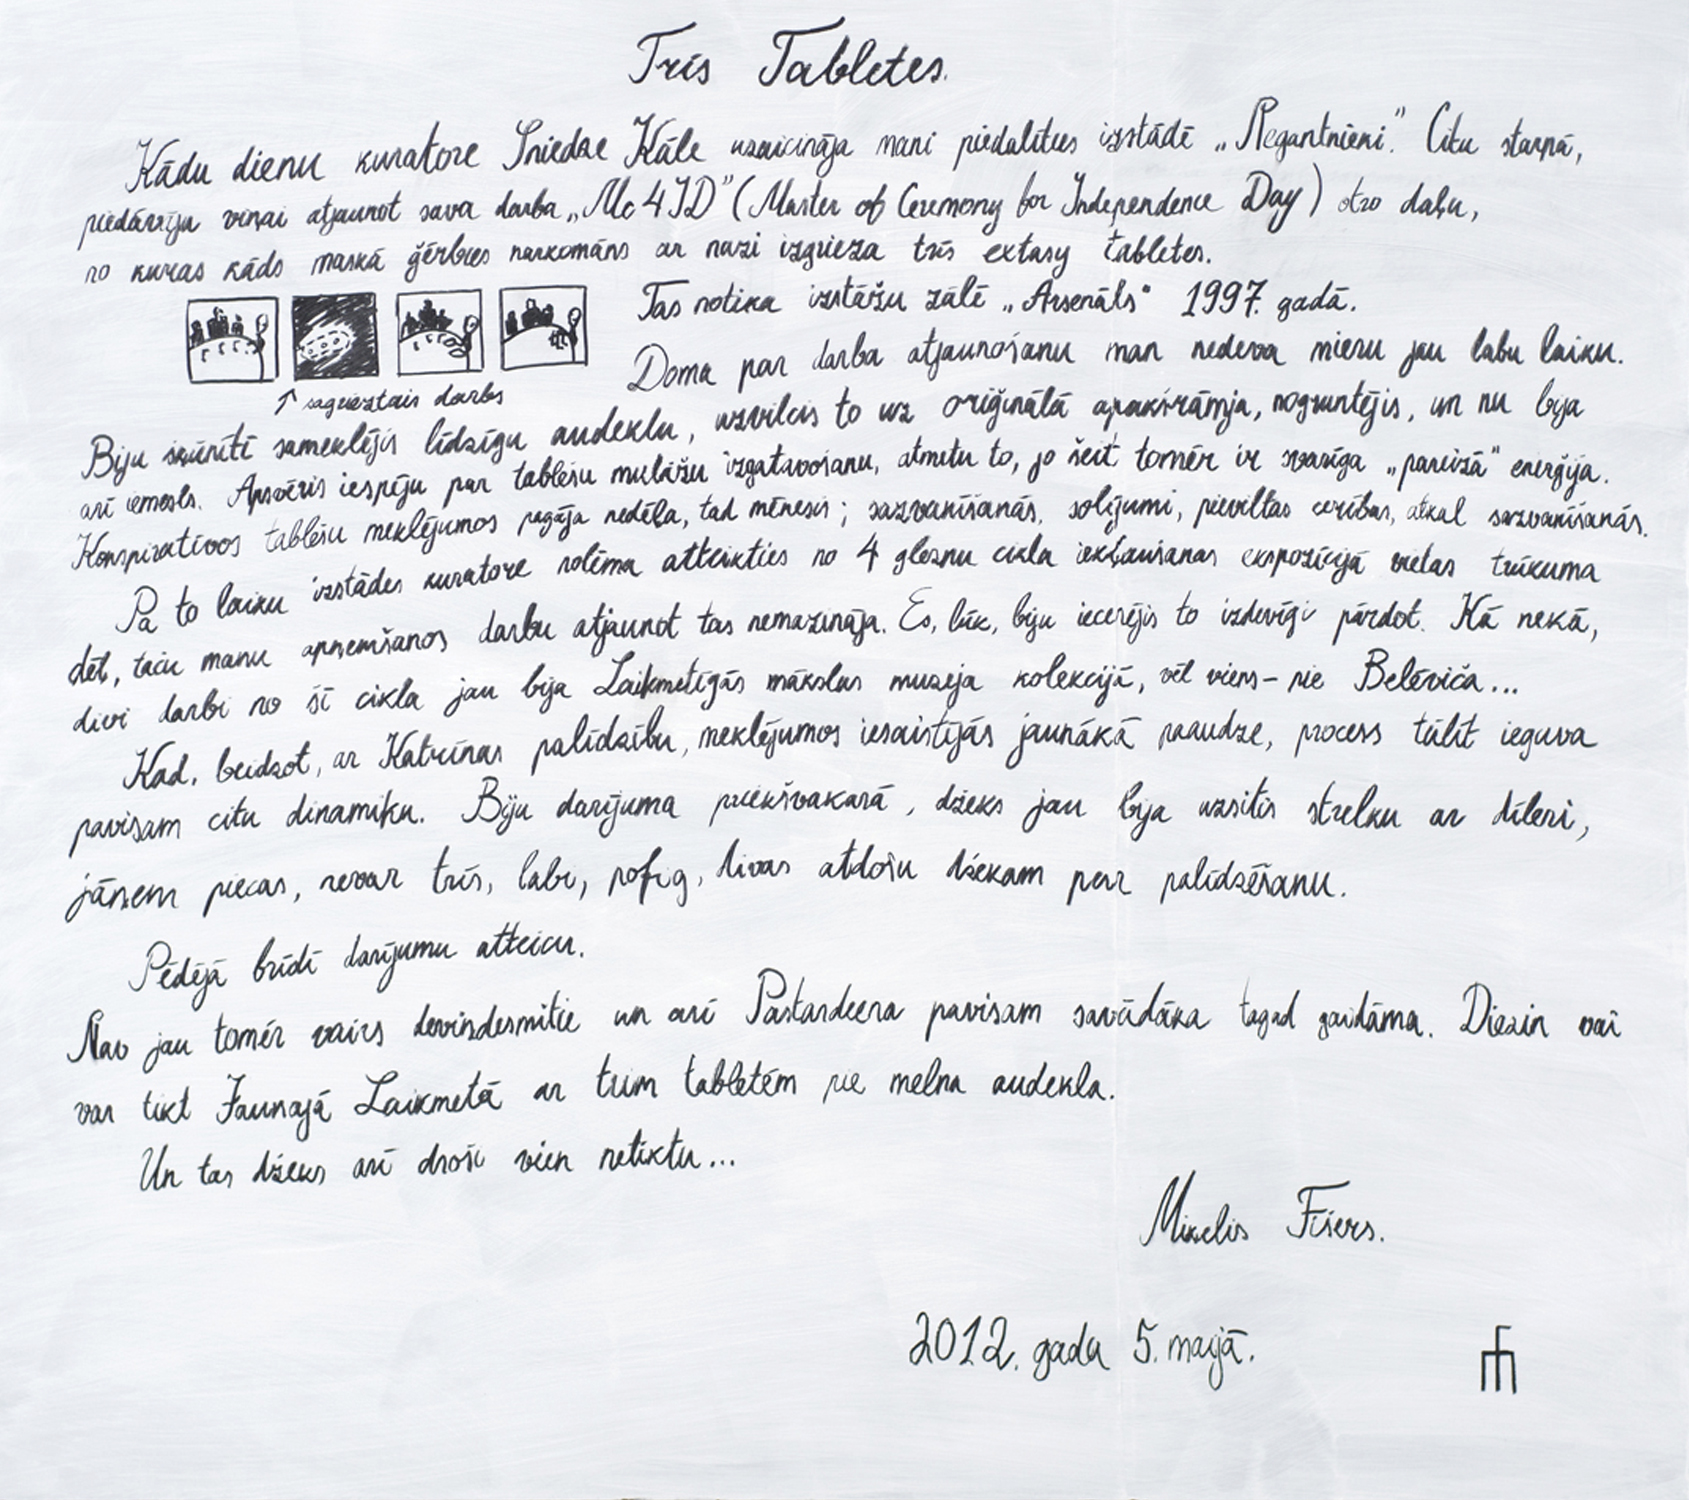 Trīs Tabletes.
Kādu dienu kuratore Sniedze Kāle uzaicināja mani piedalīties izstādē „Reģantnieki.” Citu starpā,
piedāvāju viņai atjaunot sava darba „Mc4ID” (Master of Ceremony for Independence Day) otro daļu,
no kuras kāds maskā ģērbies narkomāns ar nazi izgrieza trīs extasy tabletes.
Tas notika izstāžu zālē „Arsenāls” 1997. gadā.
Doma par darba atjaunošanu man nedeva mieru jau labu laiku.
↑ sagrieztais darbs
Biju šķūnītī sameklējis līdzīgu audeklu, uzvilcis to uz oriģinālā apakšrāmja, nogruntējis, un nu bija
arī iemesls. Apsvēris iespēju par tablešu mulāžu izgatavošanu, atmetu to, jo šeit tomēr ir svarīga „pareizā” enerģija.
Konspiratīvos tablešu meklējumos pagāja nedēļa, tad mēnesis; sazvanīšanās, solījumi, pieviltas cerības, atkal sazvanīšanās.
Pa to laiku izstādes kuratore nolēma atteikties no 4 gleznu cikla iekļaušanas ekspozīcijā vietas trūkuma
dēļ, taču manu apņemšanos darbu atjaunot tas nemazināja. Es, lūk, biju iecerējis to izdevīgi pārdot. Kā nekā,
divi darbi no šī cikla jau bija Laikmetīgās mākslas muzeja kolekcijā, vēl viens – pie Belēviča...
Kad, beidzot, ar Katrīnas palīdzību, meklējumos iesaistījās jaunākā paaudze, process tūlīt ieguva
pavisam citu dinamiku. Biju darījuma priekšvakarā, džeks jau bija uzsitis strelku ar dīleri,
jāņem piecas, nevar trīs, labi, pofig, divas atdošu džekam par palīdzēšanu.
Pēdējā brīdī darījumu atteicu.
Nav jau tomēr vairs deviņdesmitie un arī Pastardeena pavisam savādāka tagad gaidāma. Diezin vai
var tikt Jaunajā Laikmetā ar trim tabletēm pie melna audekla.
Un tas džeks arī droši vien netiktu...
Miķelis Fišers.
2012. gada 5. maijā.